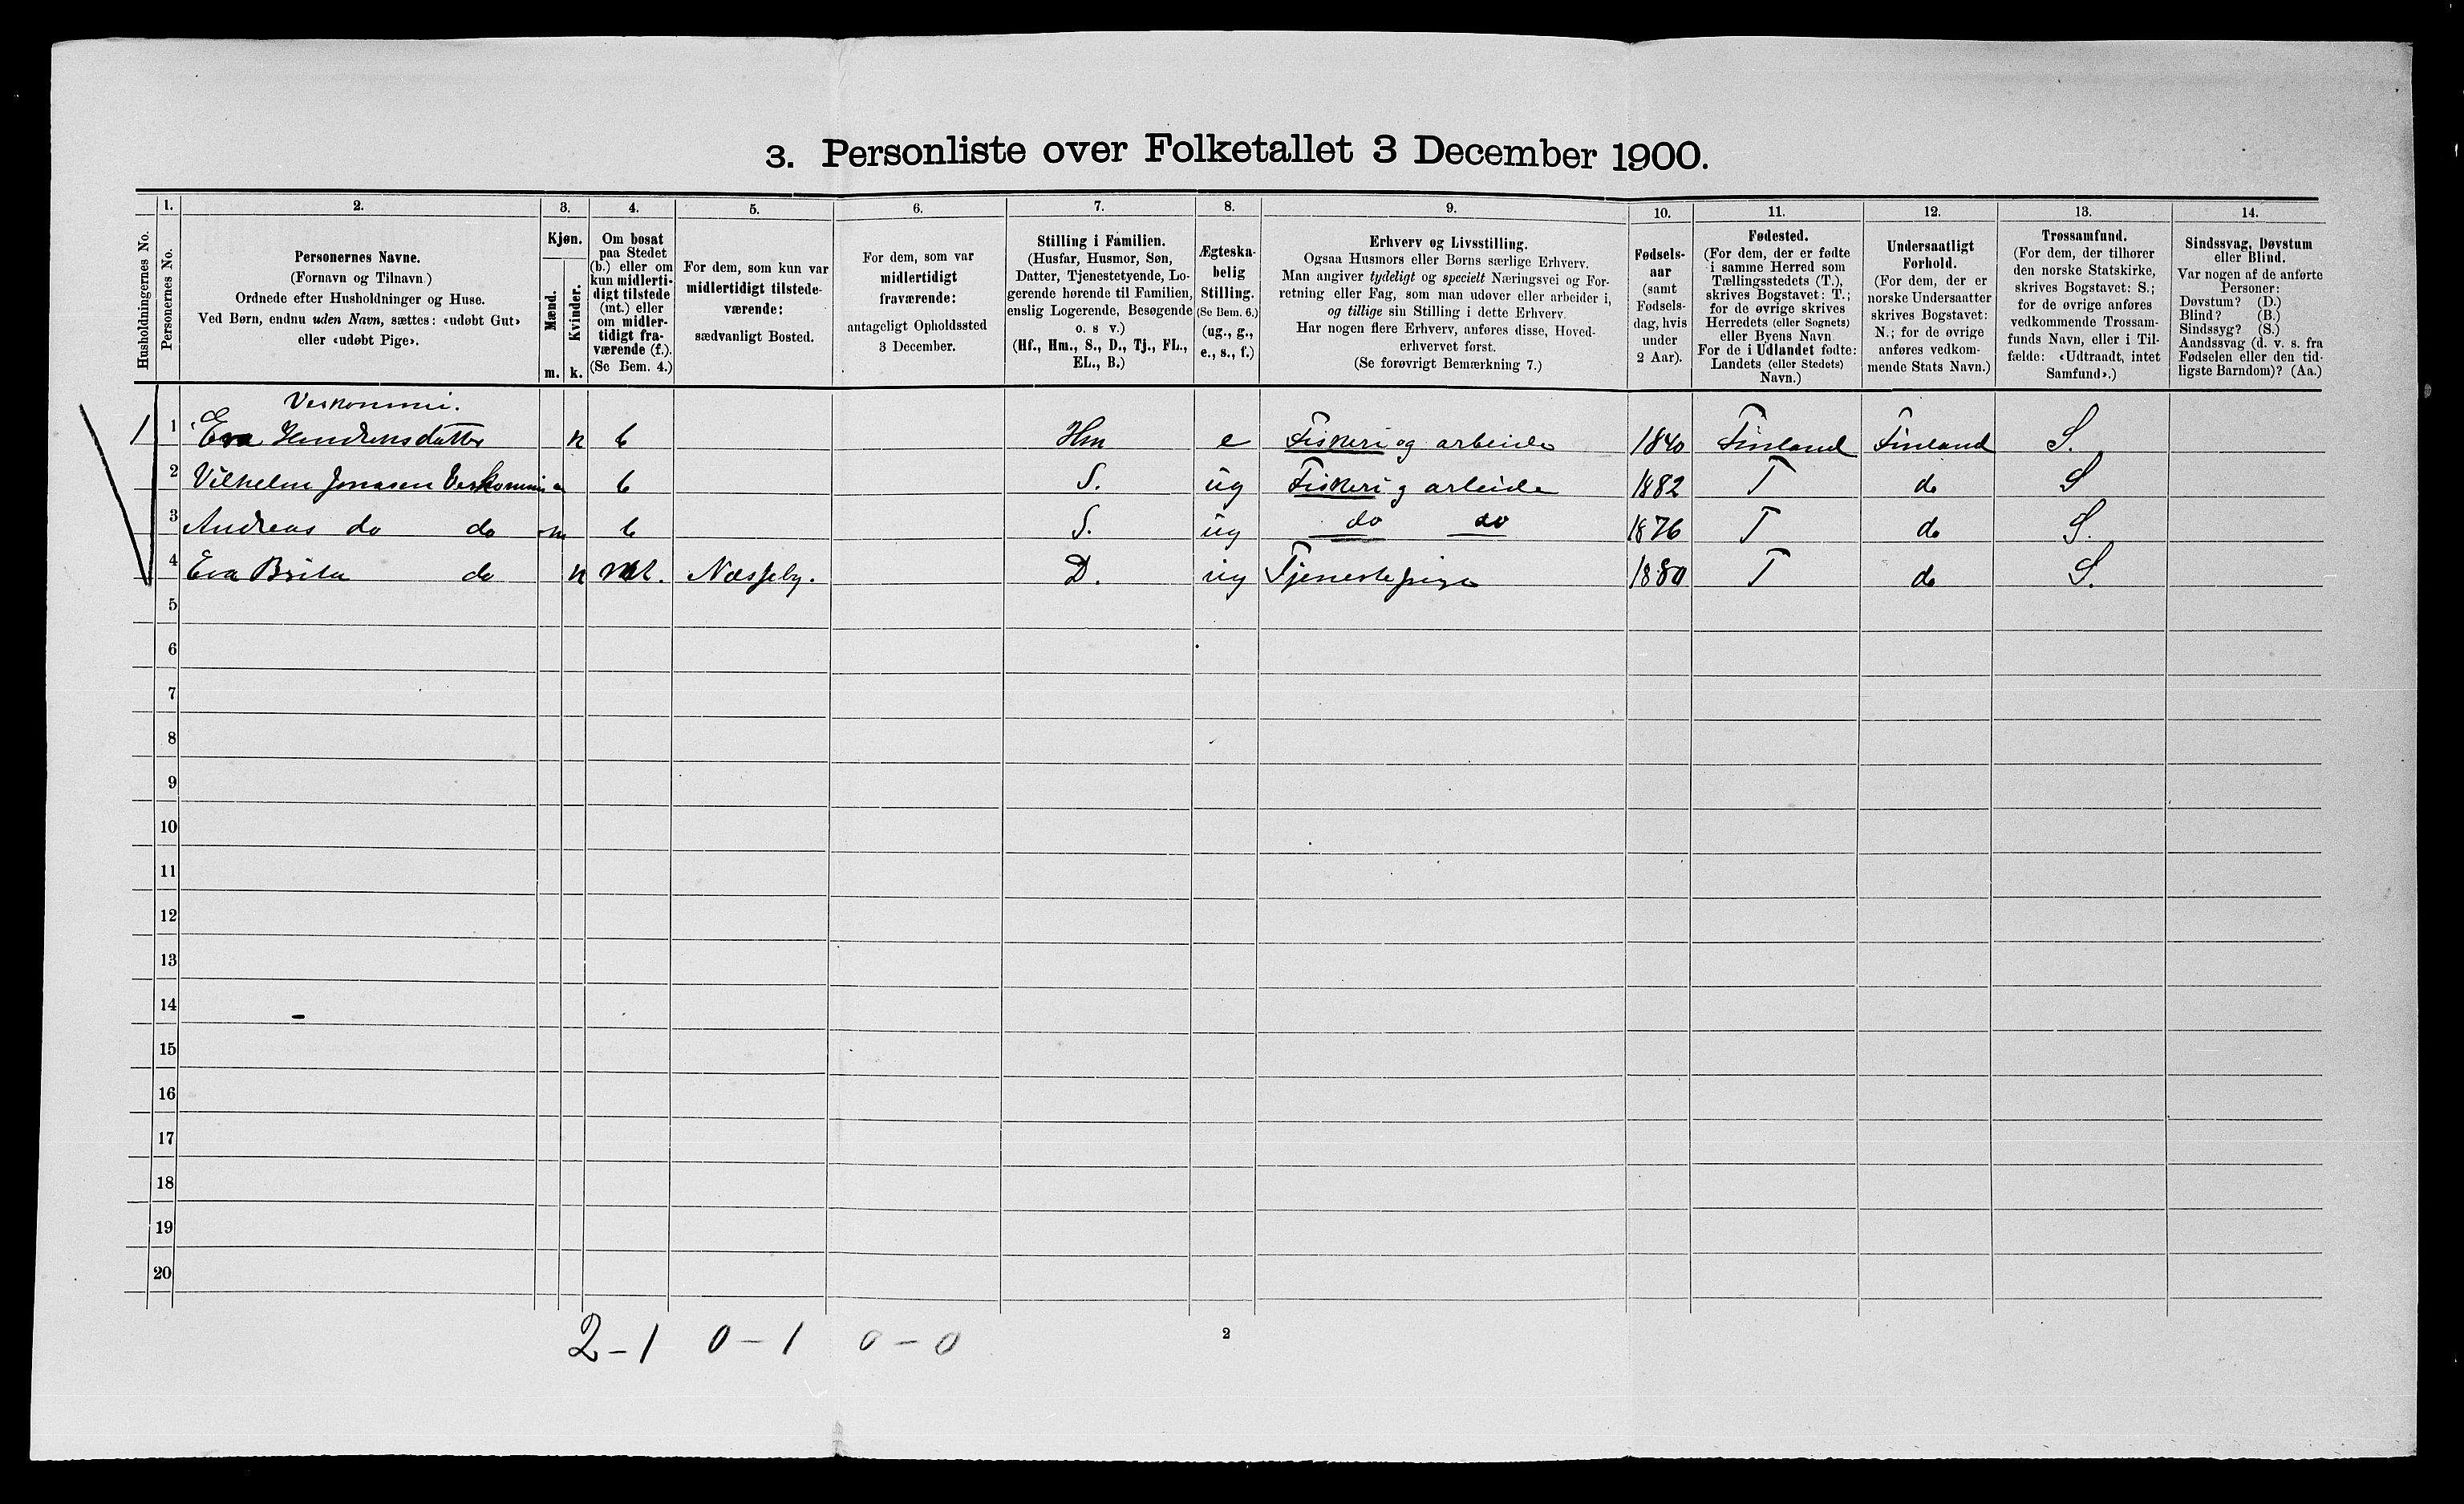 3. Personliste over Folketallet 3 December 1900.
1. 2. 3. 4. 5. 6. 7. 8. 9. 10. 11. 12. 13. 14.
Husholdningernes No.
Personernes No.
Personernes Navne.
(Fornavn og Tilnavn)
Ordnede efter Husholdninger og Huse.
Ved Børn, endnu uden Navn, sættes: «udøbt Gut»
eller «udøbt Pige».
Kjøn.
Mænd.
Kvinder.
m. k.
Om bosat
paa Stedet
(b.) eller om
kun midlerti-
digt tilstede
(mt.) eller
om midler-
tidigt fra-
værende (f.).
(Se Bem. 4.)
For dem, som kun var
midlertidigt tilstede-
værende:
sædvanligt Bosted.
For dem, som var
midlertidigt
fraværende:
antageligt Opholdssted
3 December.
Stilling i Familien.
(Husfar, Husmor, Søn,
Datter, Tjenestetyende, Lo-
gerende hørende til Familien,
enslig Logerende, Besøgende
o. s v.)
(Hf., Hm., S., D., Tj., FL.,
EL., B.)
Ægteska-
belig
Stilling.
(Se Bem. 6.)
(ug., g.,
e., s., f.)
Erhverv og Livsstilling.
Ogsaa Husmors eller Børns særlige Erhverv.
Man angiver tydeligt og specielt Næringsvei og For-
retning eller Fag, som man udøver eller arbeider i,
og tillige sin Stilling i dette Erhverv.
Har nogen flere Erhverv, anføres disse, Hoved-
erhvervet først.
(Se forøvrigt Bemærkning 7.)
Fødsels-
aar
(samt
Fødsels-
dag, hvis
under
2 Aar).
Fødested.
(For dem, der er fødte
i samme Herred som
Tællingsstedets (T.),
skrives Bogstavet: T.;
for de øvrige skrives
Herredets (eller Sognets)
eller Byens Navn.
For de i Udlandet fødte:
Landets (eller Stedets)
Navn.)
Undersaatligt
Forhold.
(For dem, der er
norske Undersaatter
skrives Bogstavet:
N.; for de øvrige
anføres vedkom-
mende Stats Navn.)
Trossamfund.
(For dem, der tilhører
den norske Statskirke,
skrives Bogstavet: S.;
for de øvrige anføres
vedkommende Trossam-
funds Navn, eller i Til-
fælde: «Udtraadt, intet
Samfund».)
Sindssvag, Døvstum
eller Blind.
Var nogen af de anførte
Personer:
Døvstum? (D.)
Blind? (B.)
Sindssyg? (S.)
Aandssvag (d. v. s. fra
Fødselen eller den tid-
ligste Barndom)? (Aa.)
Veskommi.
1 1 Eva Hendriksdatter k b Hm e Fiskeri og arbeide 1840 Finland Finland S.
2 Vilhelm Jonasen Veskommi m b S. ug Fiskeri g arbeide 1882 T do S
3 Andreas do do m b S. ug do do 1876 T do S.
4 Eva Brita do k mt. Næsseby. D. ug Tjenestepige 1880 T do S.
5
6
7
8
9
10
11
12
13
14
15
16
17
18
19
20
2 - 1 0 - 1 0 - 0
2